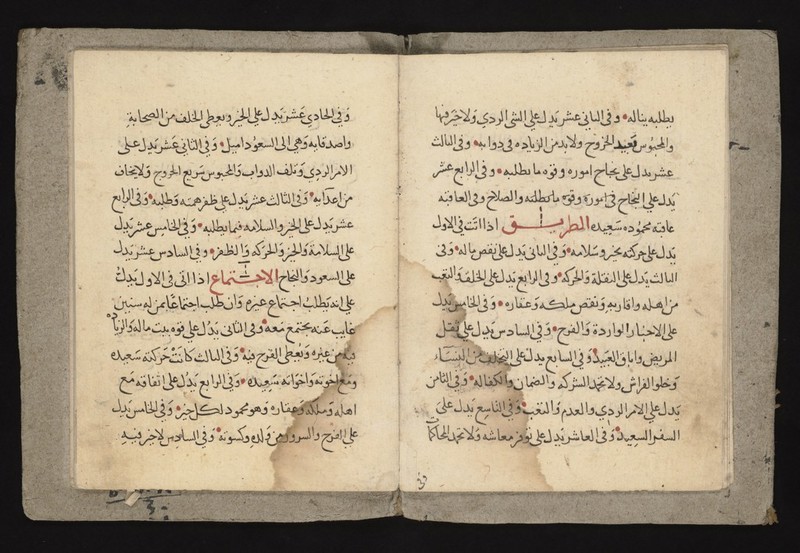 يطلبه يناله وفي الثاني عشر يدل على الشي الردي ولا خير فيها
والمحبوس بعيد الخروج ولابد من الزياده في دوابه وفي الثالث
عشر يدل على نجاح اموره وقوه ما يطلبه وفي الرابع عشر
يدل على النجاح في اموره وقوه ما يطلبه والصلاح وفي العاقبه
عاقبه محموده سعيده الطريق اذا اتت في الاول
يدل على حركته بخير وسلامه وفي الثاني يدل على نقص ماله وفي
الثالث يدل على النقلة والحركه وفي الرابع يدل على الخلف والتعب
من اهله واقاربه ونقص ملكه وعقاره وفي الخامس يدل
على الاخبار الواردة والفرح وفي السادس يدل على نقل
المريض واباق العبيد وفي السابع يدل على من النساء
وخلو الفراش ولا تحمد الشركه والضمان والكفاله وفي الثامن
يدل على الامر الردي والعدم والتعب وفي التاسع يدل على
السفر السعيد وفي العاشر يدل على توفر معاشه ولا تحمد الحاكمه
وفي
وفي الحادي عشر يدل على الخير ويعطى الخلف من الصحابة
واصدقايه وهي الى السعود اميل وفي الثاني عشر يدل على
الامر الردي وتلف الدواب والمحبوس سريع الخروج ولا يخاف
من اعدايه وفي الثالث عشر يدل على ظفر همته وطلبه وفي الرابع
عشر يدل على الخير والسلامه فيما يطلبه وفي الخامس عشر يدل
على السلامة والخير والحركه والظفر وفي السادس عشر يدل
على السعود والنجاح الاجتماع اذا اتى في الاول يدل
على انه يطلب اجتماع غيره وان طلب اجتماعا بمن له سنين
غايب عنه يجتمع معه وفي الثاني يدل على قوه بيت ماله والزياده
فيه من غيره ويعطى الفرح فيه وفي الثالث كانت حركته سعيده
ومع اخوته واخواته سعيده وفي الرابع يدل على اتفاقه مع
اهله وملكه وعقاره وهو محمود لكل خير وفي الخامس يدل
على الفرح والسرور من ولده وكسوته وفي السادس لا خير فيه